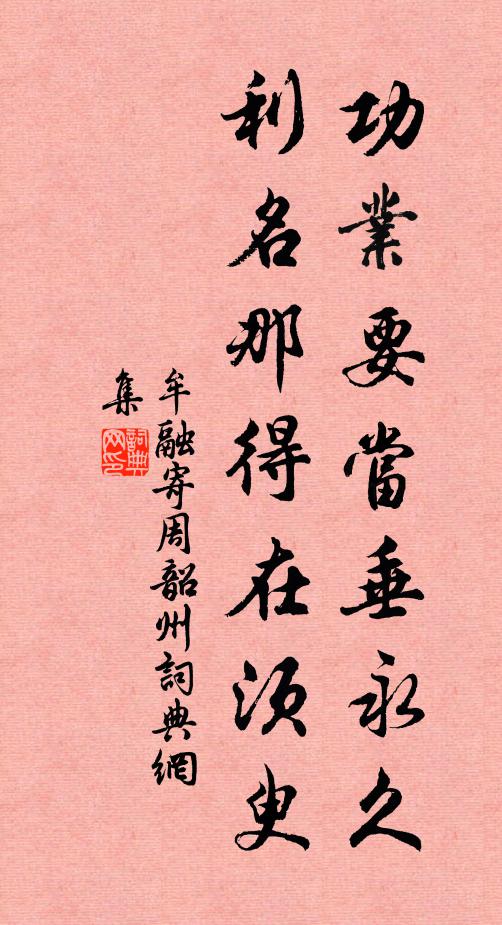 功業要當垂永久
利名那得在須臾
牟融寄周韶州詞典網
集
詞典網印